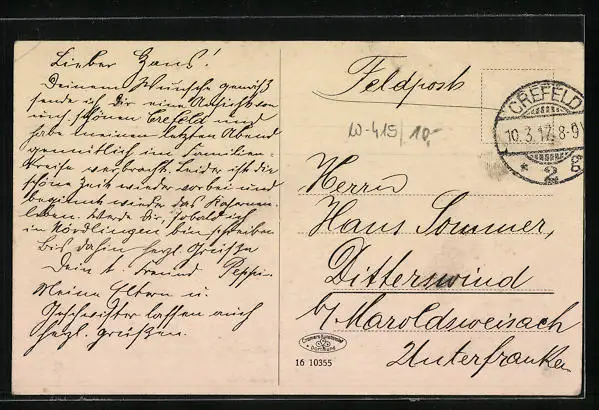 Lieber Hans!
Deinem Wunsche gemäß
sende ich Dir eine Ansicht von
uns. schönen Crefeld und
habe meinen letzten Abend
gemütlich im Familien-
kreise verbracht. Leider ist die
schöne Zeit wieder vorbei und
beginnt wieder das Kasernen-
leben. Werde Dir, sobald ich
in Nördlingen bin schreiben
Bis dahin herzl. Grüße
Dein t. Freund Peppi.
Meine Eltern u.
Geschwister lassen auch
herzl. grüßen.
Feldpost
CREFELD
10.3.17. 8-9
* 2
10-415/10,-
Herrn
Hans Sommer,
Ditterswind
b/ Maroldsweisach
Unterfranken
Dortmund
16 10355